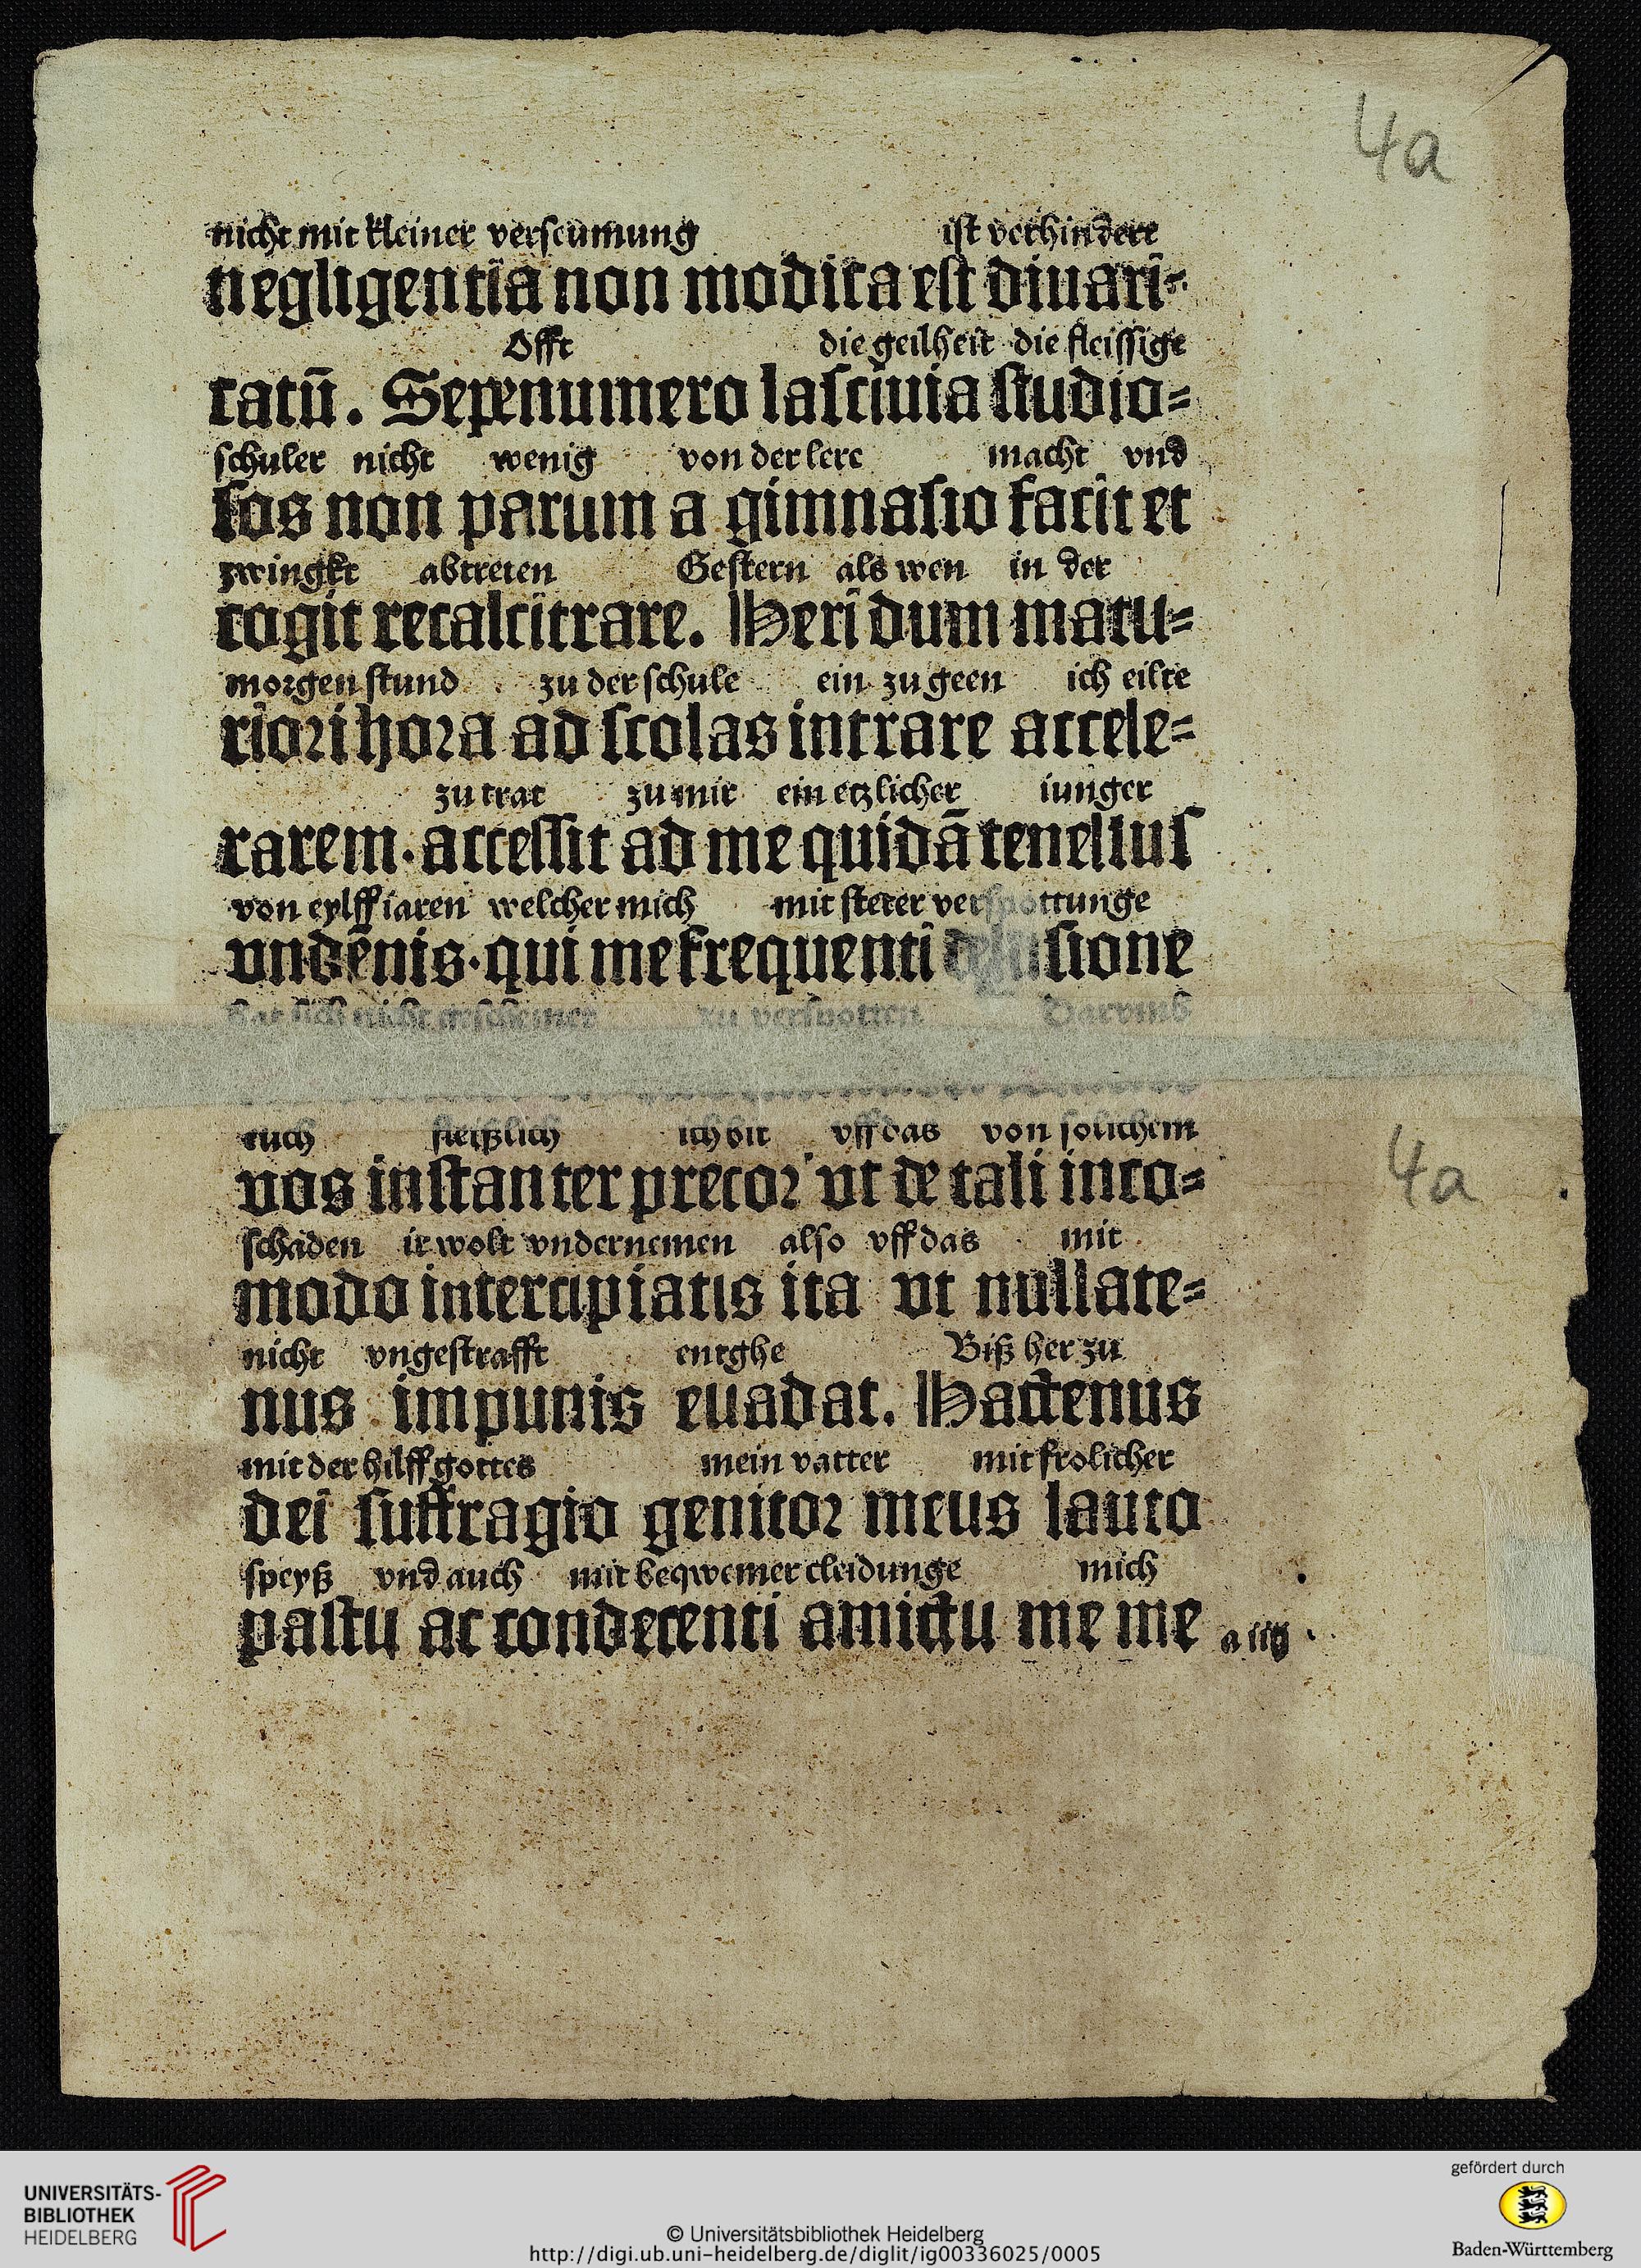 4a
nicht mit kleiner verseumung ist verhindere
negligentia non modica est diuari⸗
Offt die geilheit die fleissige
catū. Sepenumero lasciuia studio⸗
schuler nicht wenig von der lere macht vnd
sos non parum a gimnasio facit et
zwingkt abtreten Gestern als wen in der
cogit recalcitrare. Heri dum matu⸗
morgen stund zu der schule ein zu geen ich eilte
riori hora ad scolas intrare accele⸗
zu trat zu mir ein etzlicher iunger
rarem. accessit ad me quidā tenellus
von eylff iaren welcher mich mit steter verspottunge
vndēnis. qui me frequenti delusione
hat sich nicht geschemet zu verspotten Darvmb
euch fleißlich ich bit vff das von solichem
vos instanter precor vt de tali inco⸗
4a
schaden ir wolt vndernemen also vff das mit
modo intercipiatis ita vt nullate⸗
nicht vngestrafft entghe Biß her zu
nus impunis euadat. Hactenus
mit der hilff gottes mein vatter mit frolicher
dei suffragio genitor meus lauto
speyß vnd auch mit beqwemer cleidunge mich
pastu ac condecenti amictu me me
a iiij
UNIVERSITÄTS-
BIBLIOTHEK
HEIDELBERG
© Universitätsbibliothek Heidelberg
http://digi.ub.uni-heidelberg.de/diglit/ig00336025/0005
gefördert durch
Baden-Württemberg